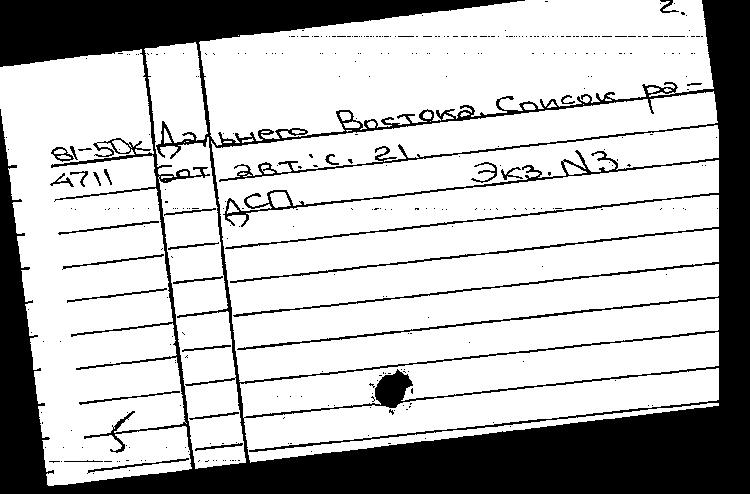 2.
81-5Dк Дальнего Востока. Список ра-
4711 бот авт.: с. 21.
ДСП. Экз. N3.
5